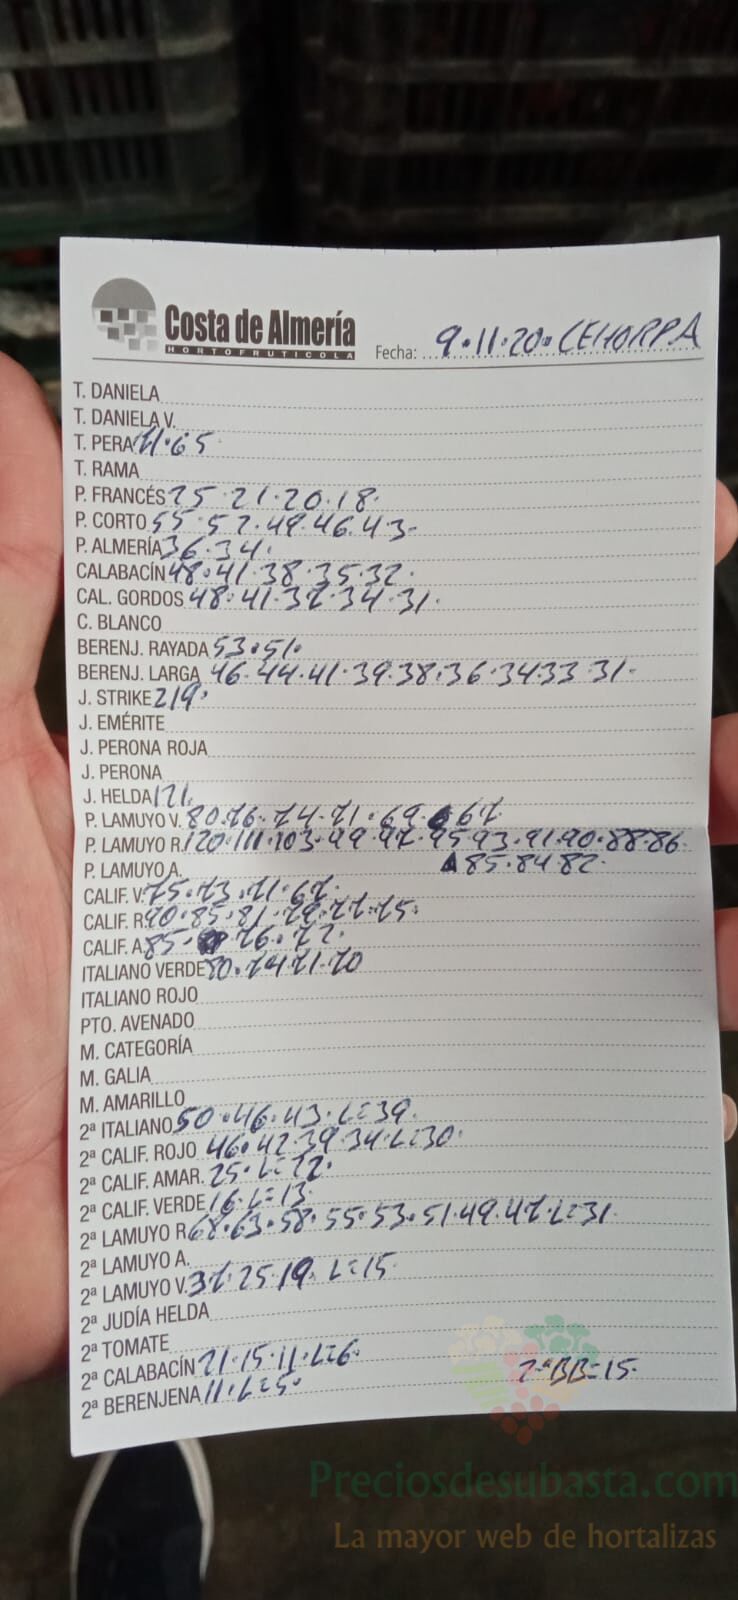 Costa de Almería
HORTOFRUTICOLA
Fecha: 9.11.20. CEHORPA
T. DANIELA
T. DANIELA V.
T. PERA 71.65
T. RAMA
P. FRANCÉS 25.21.20.18.
P. CORTO 55.52.49.46.43-
P. ALMERÍA 36.34.
CALABACÍN 48.41.38.35.32.
CAL. GORDOS 48.41.37.34.31.
C. BLANCO
BERENJ. RAYADA 53.51.
BERENJ. LARGA 46.44.41.39.38.36.34.33.31-
J. STRIKE 219.
J. EMÉRITE
J. PERONA ROJA
J. PERONA
J. HELDA 121.
P. LAMUYO V. 80.76.74.71.69.67.
P. LAMUYO R. 120.111.103.99.97.95.93.91.90.88.86.
P. LAMUYO A. 85.84.82.
CALIF. V. 75.73.71.67.
CALIF. R. 90.85.81.79.77.75.
CALIF. A. 85.76.72.
ITALIANO VERDE 80.74.71.70
ITALIANO ROJO
PTO. AVENADO
M. CATEGORÍA
M. GALIA
M. AMARILLO
2ª ITALIANO 50.46.43.L=39.
2ª CALIF. ROJO 46.42.39.34.L=30.
2ª CALIF. AMAR. 25.L=22.
2ª CALIF. VERDE 16.L=13.
2ª LAMUYO R. 68.63.58.55.53.51.49.47.L=31.
2ª LAMUYO A.
2ª LAMUYO V. 37.25.19.L=15.
2ª JUDÍA HELDA
2ª TOMATE
2ª CALABACÍN 21.15.11.L=6.
2ª BERENJENA 11.L=5. 2ªBB=15.
Preciosdesubasta.com
La mayor web de hortalizas